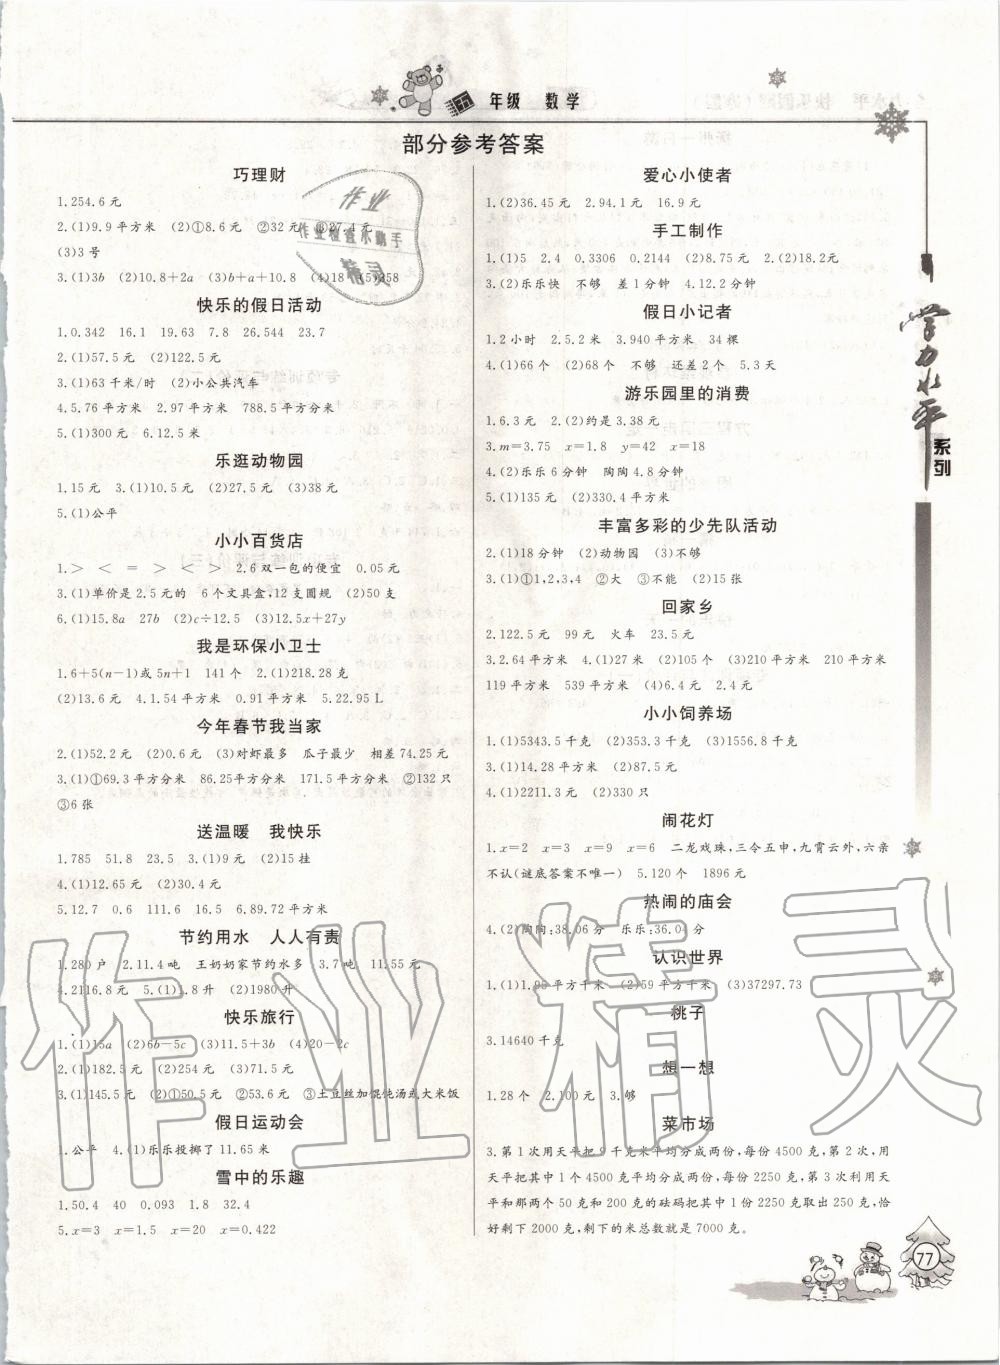 五年级 数学
部分参考答案
巧理财
1.254.6元
2.(1)9.9平方米 (2)①8.6元 ②32元 ③27.4元
(3)3号
3.(1)3b (2)10.8+2a (3)b+a+10.8 (4)18 (5)258
快乐的假日活动
1.0.342 16.1 19.63 7.8 26.544 23.7
2.(1)57.5元 (2)122.5元
3.(1)63千米/时 (2)小公共汽车
4.5.76平方米 2.97平方米 788.5平方分米
5.(1)300元 6.12.5米
乐逛动物园
1.15元 3.(1)10.5元 (2)27.5元 (3)38元
5.(1)公平
小小百货店
1.> < = > < > 2.6双一包的便宜 0.05元
3.(1)单价是2.5元的 6个文具盒,12支圆规 (2)50支
6.(1)15.8a 27b (2)c÷12.5 (3)12.5x+27y
我是环保小卫士
1.6+5(n-1)或5n+1 141个 2.(1)218.28克
(2)13.6元 4.1.54平方米 0.91平方米 5.22.95 L
今年春节我当家
2.(1)52.2元 (2)0.6元 (3)对虾最多 瓜子最少 相差74.25元
3.(1)①69.3平方分米 86.25平方分米 171.5平方分米 ②132只
③6张
送温暖 我快乐
1.785 51.8 23.5 3.(1)9元 (2)15挂
4.(1)12.65元 (2)30.4元
5.12.7 0.6 111.6 16.5 6.89.72平方米
节约用水 人人有责
1.280户 2.11.4吨 王奶奶家节约水多 3.7吨 11.55元
4.2116.8元 5.(1)1.8升 (2)1980升
快乐旅行
1.(1)15a (2)6b-5c (3)11.5+3b (4)20-2c
2.(1)182.5元 (2)254元 (3)71.5元
3.(1)145.5元 (2)①50.5元 ②53.6元 ③土豆丝加馄饨汤或大米饭
假日运动会
1.公平 4.(1)乐乐投掷了11.65米
雪中的乐趣
1.50.4 40 0.093 1.8 32.4
5.x=3 x=1.5 x=20 x=0.422
爱心小使者
1.(2)36.45元 2.94.1元 16.9元
手工制作
1.(1)5 2.4 0.3306 0.2144 (2)8.75元 2.(2)18.2元
3.(2)乐乐快 不够 差1分钟 4.12.2分钟
假日小记者
1.2小时 2.5.2米 3.940平方米 34棵
4.(1)66个 (2)68个 不够 还差2个 5.3天
游乐园里的消费
1.6.3元 2.(2)约是3.38元
3.m=3.75 x=1.8 y=42 x=18
4.(2)乐乐6分钟 陶陶4.8分钟
5.(1)135元 (2)330.4平方米
丰富多彩的少先队活动
2.(1)18分钟 (2)动物园 (3)不够
3.(1)①1,2,3,4 ②大 ③不能 (2)15张
回家乡
2.122.5元 99元 火车 23.5元
3.2.64平方米 4.(1)27米 (2)105个 (3)210平方米 210平方米
119平方米 539平方米 (4)6.4元 2.4元
小小饲养场
1.(1)5343.5千克 (2)353.3千克 (3)1556.8千克
3.(1)14.28平方米 (2)87.5元
4.(1)2211.3元 (2)330只
闹花灯
1.x=2 x=3 x=9 x=6 二龙戏珠,三令五申,九霄云外,六亲
不认(谜底答案不唯一) 5.120个 1896元
热闹的庙会
4.(2)陶陶:38.06分 乐乐:36.04分
认识世界
1.(1)1.95平方千米 (2)59平方千米 (3)37297.73
桃子
3.14640千克
想一想
1.28个 2.100元 3.够
菜市场
3.第1次用天平把9千克米平均分成两份,每份4500克,第2次,用
天平把其中1个4500克平均分成两份,每份2250克,第3次利用天
平和那两个50克和200克的砝码把其中1份2250克取出250克,恰
好剩下2000克,剩下的米总数就是7000克。
学力水平
系列
77
作业
作业检查小助手
精灵
作业精灵